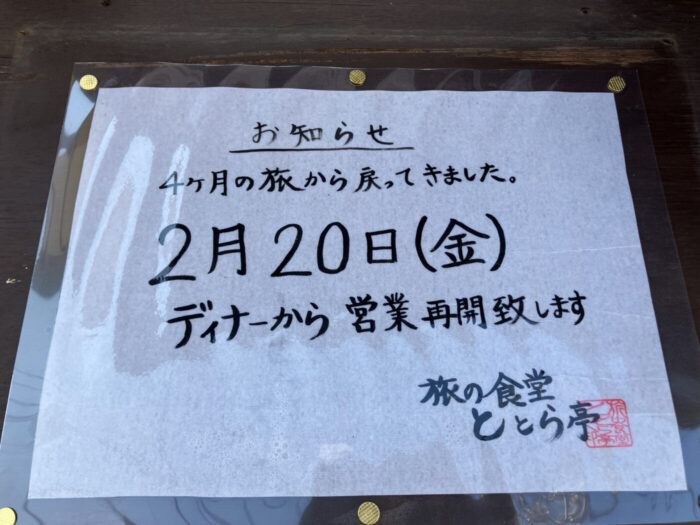 お知らせ
4ヶ月の旅から戻ってきました。
2月20日(金)
ディナーから営業再開致します
旅の食堂
ととら亭